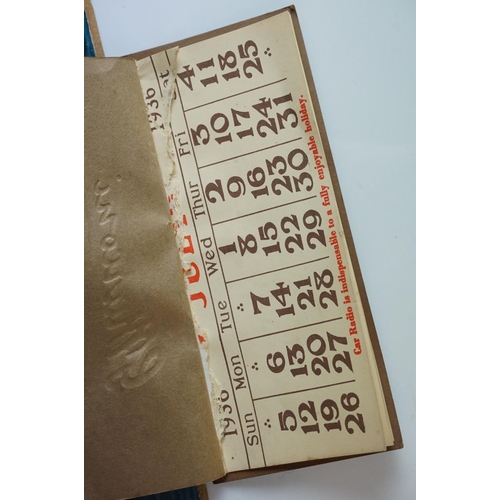 1936 JULY 1936
Sun Mon Tue Wed Thur Fri Sat
1 2 3 4
5 6 7 8 9 10 11
12 13 14 15 16 17 18
19 20 21 22 23 24 25
26 27 28 29 30 31
Car Radio is indispensable to a fully enjoyable holiday.